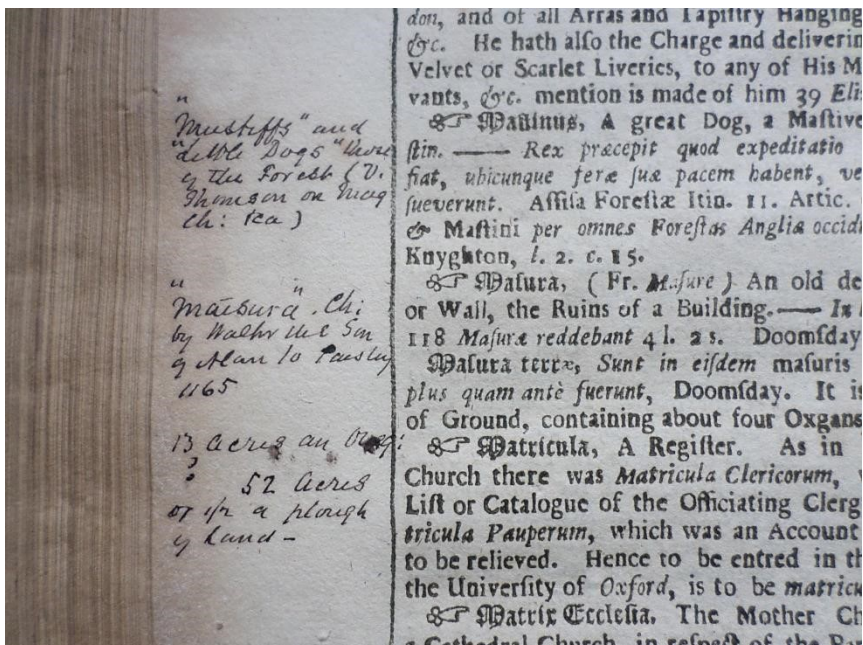 "Mastiffs" and
"little Dogs"
of the Forest (V.
Thomson on Mag
Ch:
"Maisura". Ch:
by Walter the Son
of Alan to Paisley
1165
13 acres an Oxg:
?
52 acres
or 1/2 a plough
of land -
don, and of all Arras and Tapiſtry Hanging
&c. He hath alſo the Charge and deliverin
Velvet or Scarlet Liveries, to any of His M
vants, &c. mention is made of him 39 Eli
☞ Maſtinus, A great Dog, a Maſtive
ſtin. —— Rex præcepit quod expeditatio
fiat, ubicunque feræ ſuæ pacem habent, ve
ſueverunt. Aſſiſa Foreſtæ Itin. 11. Artic.
& Maſtini per omnes Foreſtas Angliæ occidi
Knyghton, l. 2. c. 15.
☞ Maſura, (Fr. Maſure) An old de
or Wall, the Ruins of a Building.—— In
118 Maſuræ reddebant 4 l. 2 s. Doomſday
Maſura terræ, Sunt in eiſdem maſuris
plus quam antè fuerunt, Doomſday. It is
of Ground, containing about four Oxgans
☞ Matricula, A Regiſter. As in
Church there was Matricula Clericorum,
Liſt or Catalogue of the Officiating Clerg
tricula Pauperum, which was an Account
to be relieved. Hence to be entred in th
the Univerſity of Oxford, is to be matricu
☞ Matrix Eccleſia. The Mother Ch
a Cathedral Church, in reſpect of the Par